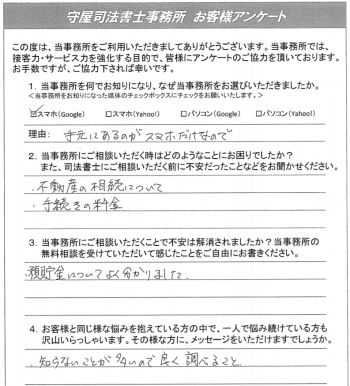 守屋司法書士事務所 お客様アンケート
この度は、当事務所をご利用いただきましてありがとうございます。当事務所では、
接客力・サービス力を強化する目的で、皆様にアンケートのご協力を頂いております。
お手数ですが、ご協力下されば幸いです。
1. 当事務所を何でお知りになり、なぜ当事務所をお選びいただきましたか。
<当事務所をお知りになった媒体のチェックボックスにチェックをお願いします。>
☑スマホ(Google) □スマホ(Yahoo!) □パソコン(Google) □パソコン(Yahoo!)
理由: 手元にあるのがスマホだけなので
2. 当事務所にご相談いただく時はどのようなことにお困りでしたか?
また、司法書士にご相談いただく前に不安だったことなどをお聞かせください。
・不動産の相続について
・手続きの料金
3. 当事務所にご相談いただくことで不安は解消されましたか?当事務所の
無料相談を受けていただいて感じたことをご自由にお書きください。
・預貯金についてよく分かりました。
4. お客様と同じ様な悩みを抱えている方の中で、一人で悩み続けている方も
沢山いらっしゃいます。その様な方に、メッセージをいただけますでしょうか。
・知らないことが多いので良く調べること